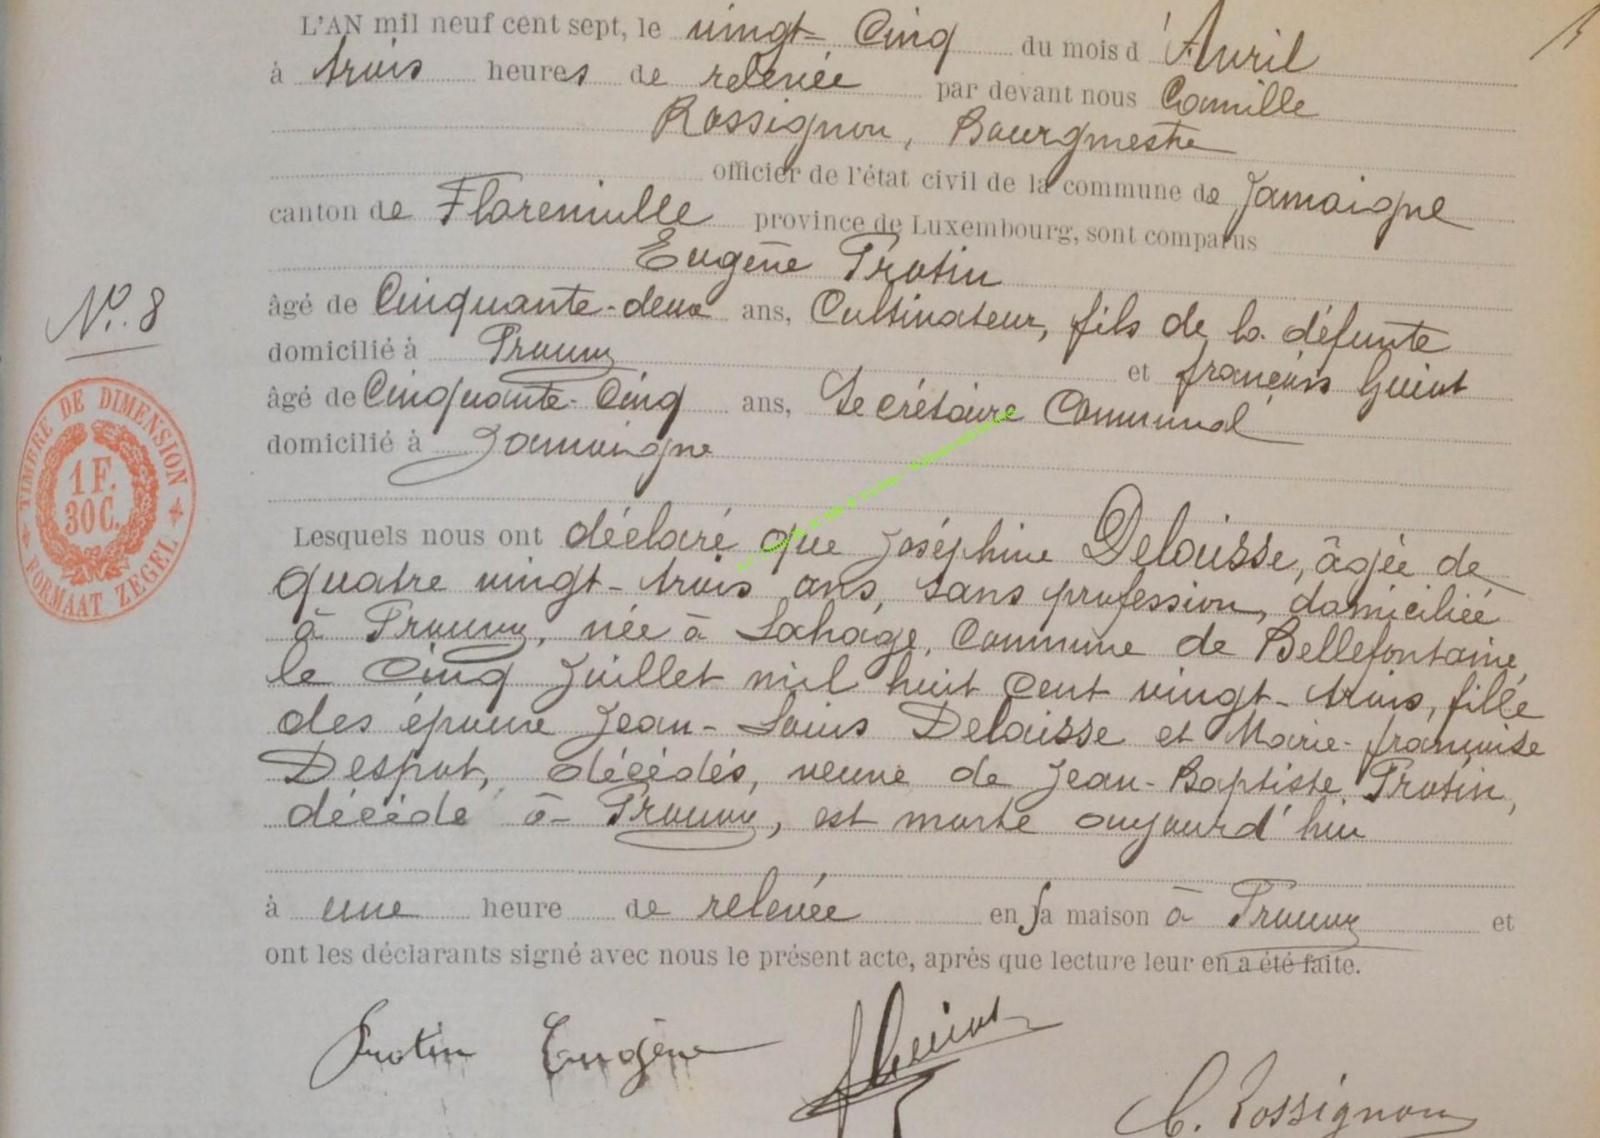 L'AN mil neuf cent sept, le vingt-Cinq du mois d'Avril
à trois heures de relevée par devant nous Camille
Rossignon, Bourgmestre
officier de l'état civil de la commune de Jamoigne
canton de Florenville province de Luxembourg, sont comparus
Eugène Protin
âgé de Cinquante-deux ans, Cultivateur, fils de la défunte
domicilié à Prouvy et françois Guiot
âgé de Cinquante-Cinq ans, Secrétaire Communal
domicilié à Jamoigne
N°. 8
TIMBRE DE DIMENSION
1 F.
30 C.
FORMAAT ZEGEL
Lesquels nous ont déclaré que Joséphine Delaisse, âgée de
quatre vingt-trois ans, sans profession, domiciliée
à Prouvy, née à Lahage, Commune de Bellefontaine
le Cinq Juillet mil huit Cent vingt-trois, fille
des époux Jean-Louis Delaisse et Marie-françoise
Desput, décédés, veuve de Jean-Baptiste Protin,
décédé à Prouvy, est morte aujourd'hui
à une heure de relevée en sa maison à Prouvy et
ont les déclarants signé avec nous le présent acte, après que lecture leur en a été faite.
Protin Eugène
f Guiot
C. Rossignon